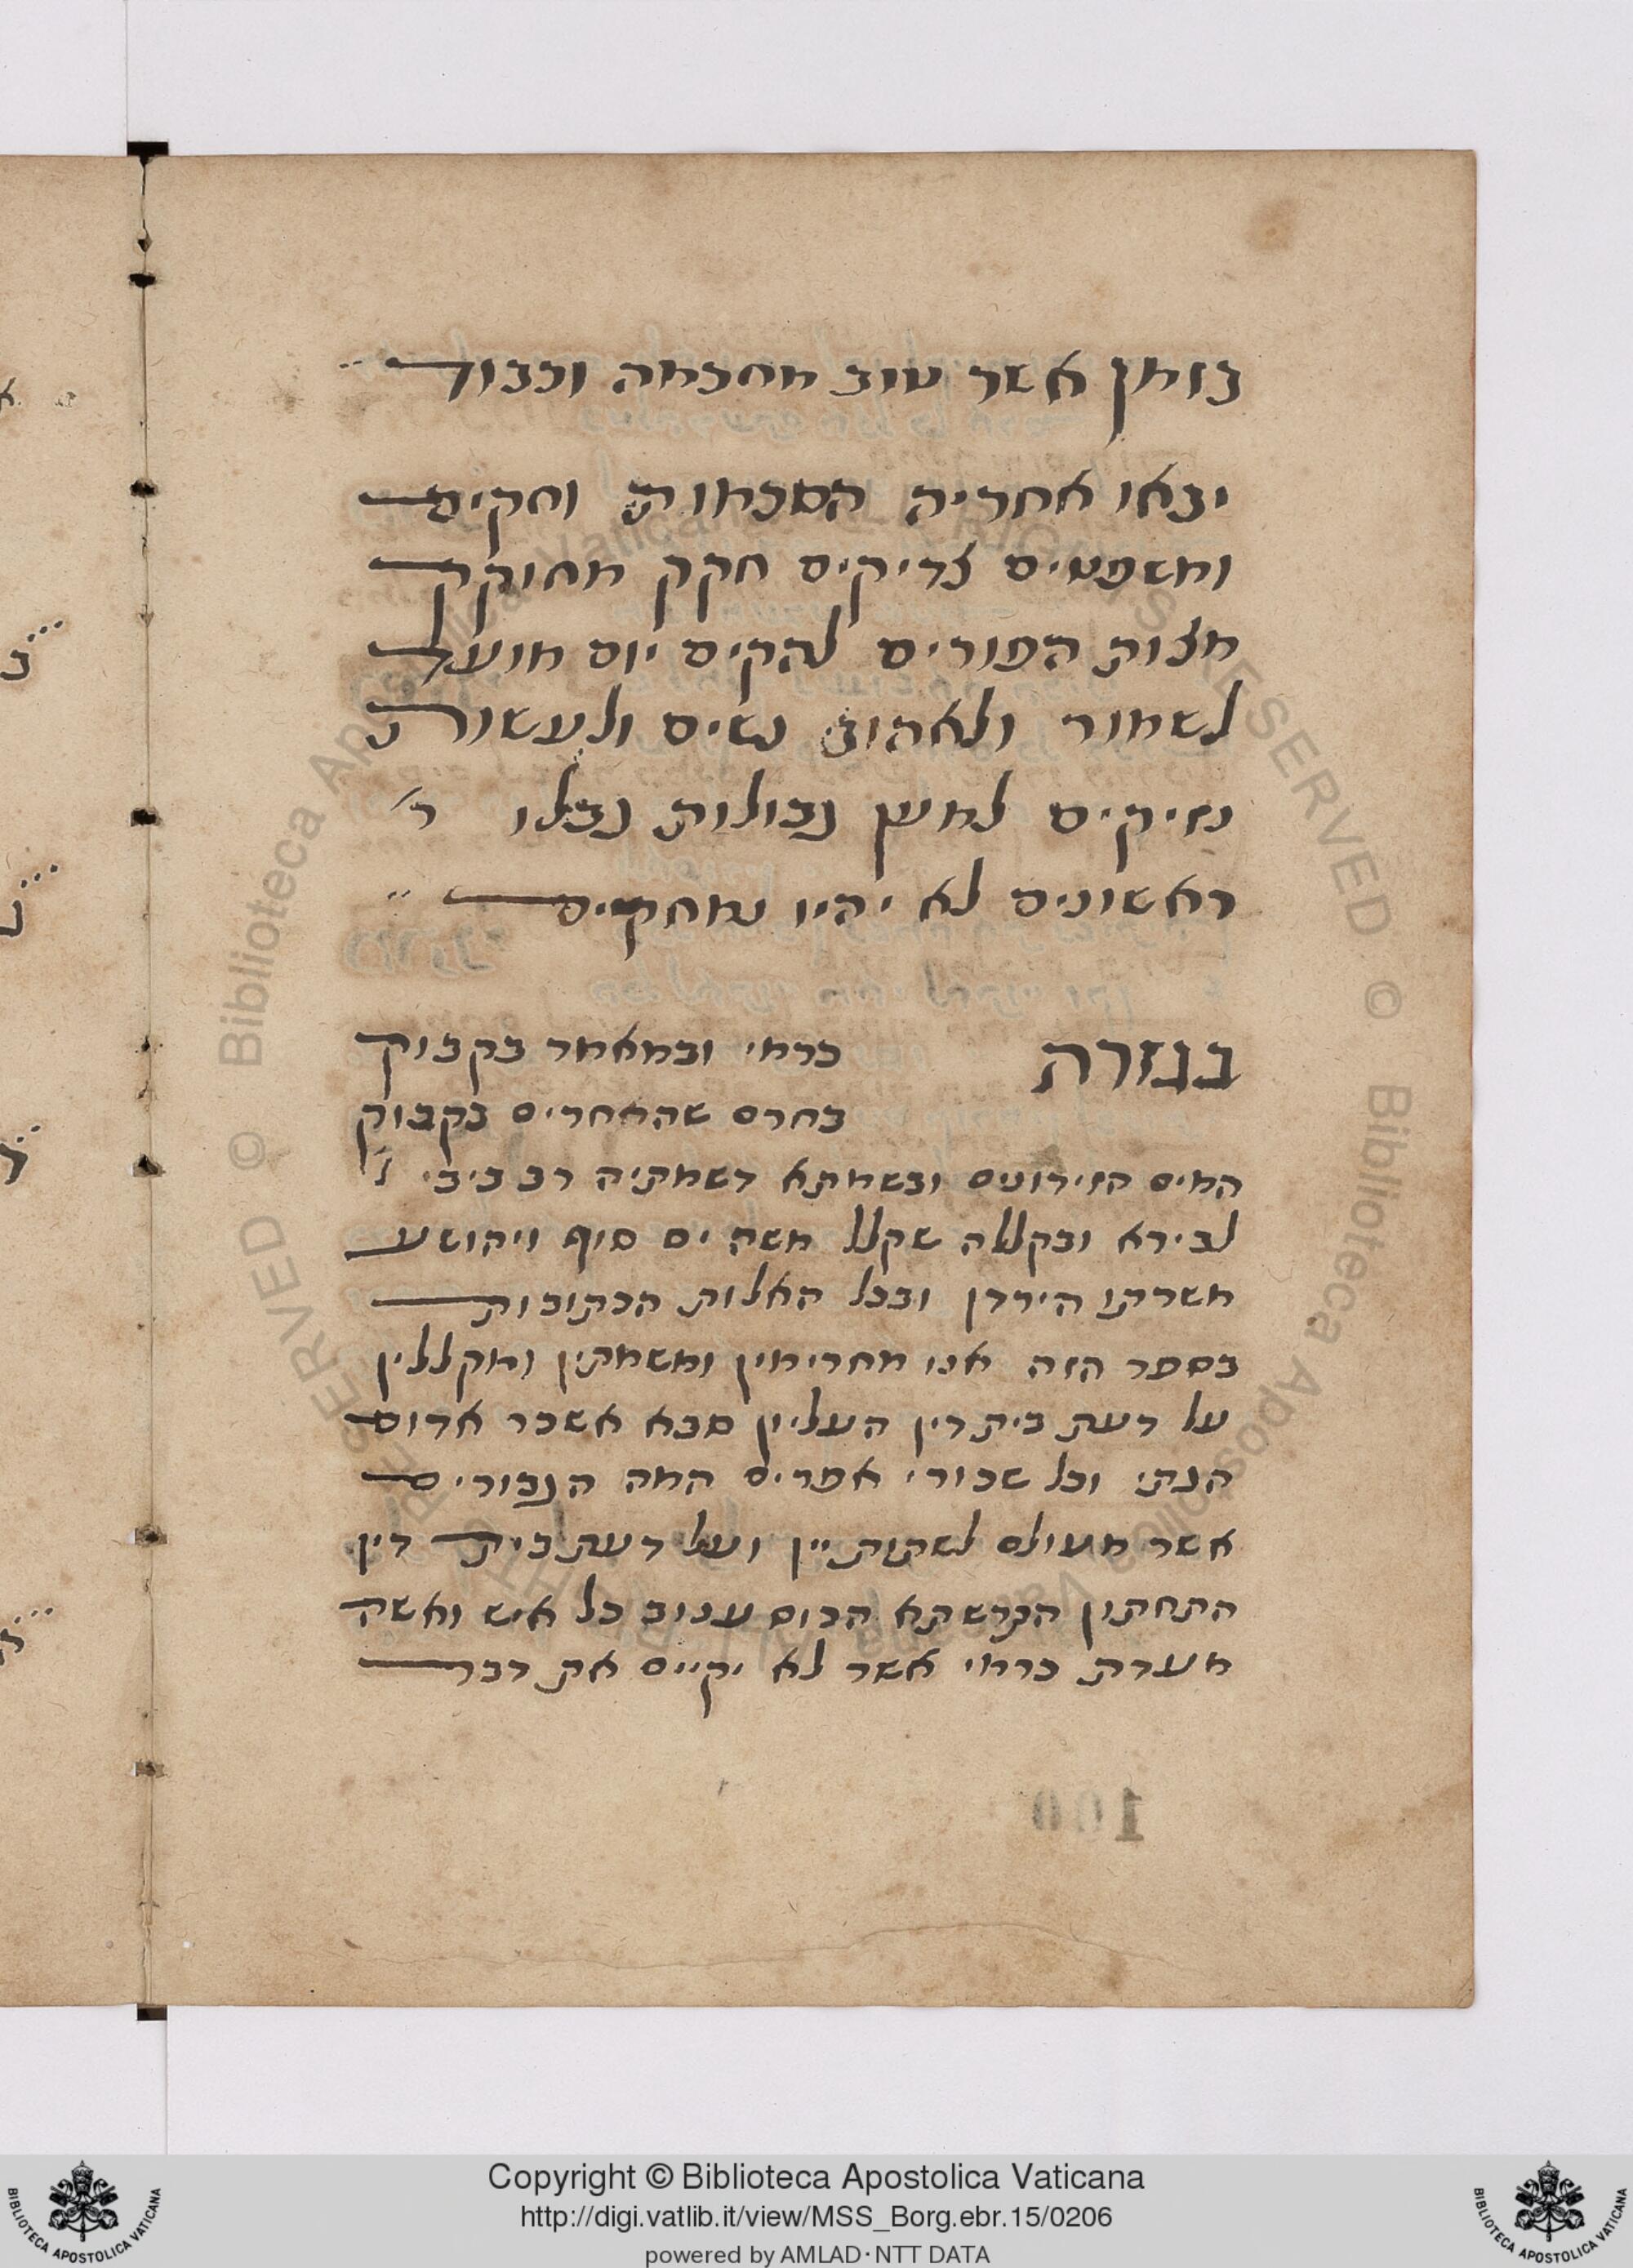 בזמן אשר טוב מחכמה וכבוד
יצאו אחריה הסכמות וחקים
ומשפטים צדיקים חקק מחוקק
מצות הפורים להקים יום מועד
לשמור ולאהוב נשים ולעשות
נזיקים למען נבולות גבלו ר׳
ראשונים לא יהיו נמחקים
בגזרת כרמי ובמאמר בקבוק
בחרם שהחרים בקבוק
המים הזידונים ובשמתא דשמתיה רב ביבי
לבירא ובקללה שקלל משה ים סוף ויהושע
משרתו הירדן ובכל האלות הכתובות
בספר הזה אנו מחרימין ומשמתין ומקללין
על דעת בית דין העליון סבא אשכר אדום
הגתי וכל שכורי אפרים המה הגבורים
אשר מעולם לשתות יין ועל דעת בית דין
התחתון הכרשתא הכוס ענוב כל איש ואשה
מעדת כרמי אשר לא יקיים את דבר
100
Copyright © Biblioteca Apostolica Vaticana
http://digi.vatlib.it/view/MSS_Borg.ebr.15/0206
powered by AMLAD·NTT DATA